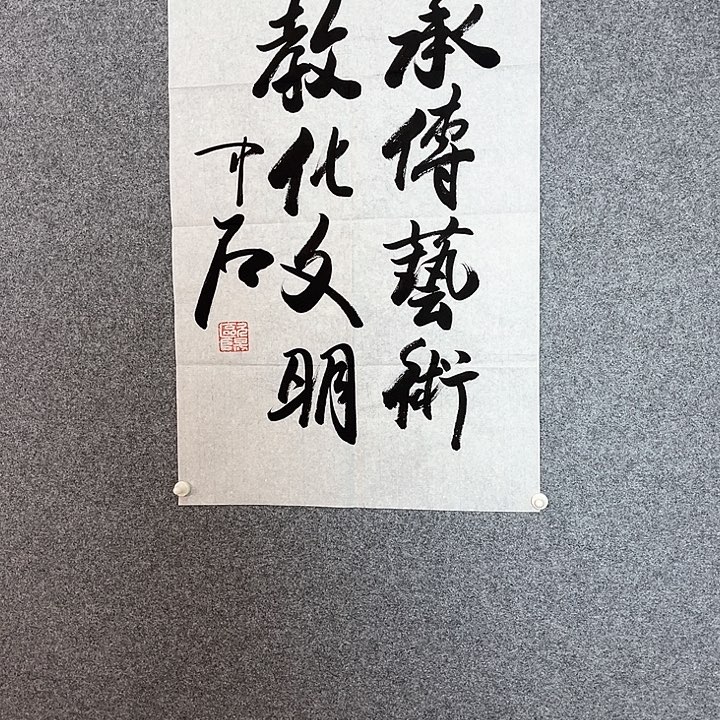 承傳藝術
教化文明
中石